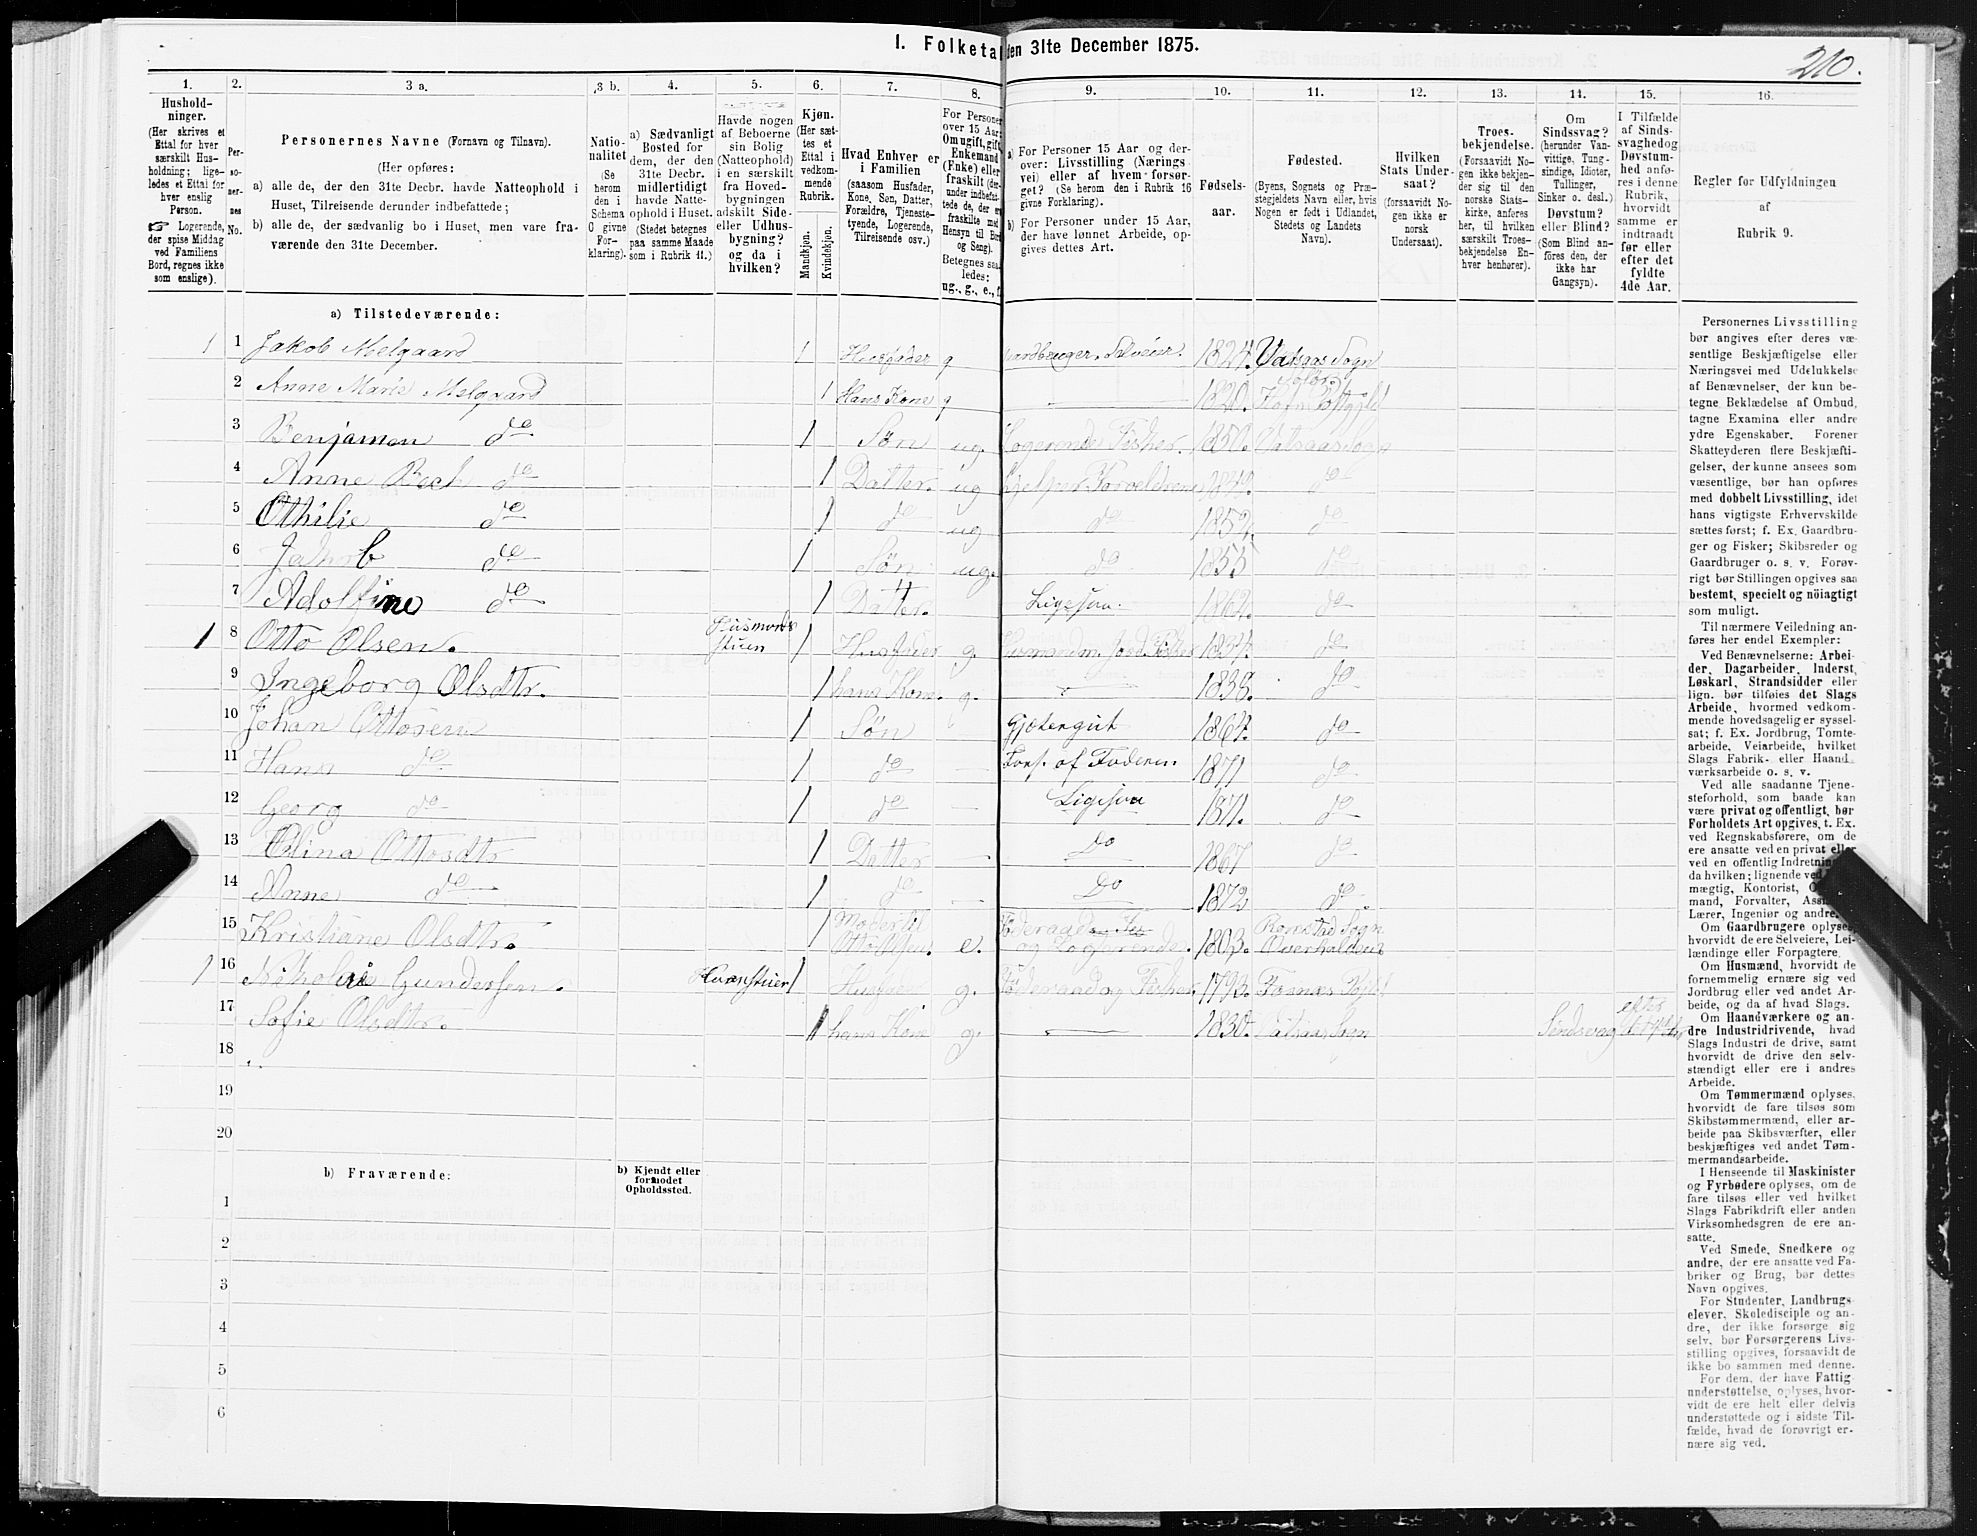 I. Folketal den 31te December 1875.
210.
1.
Hushold-
ninger.
(Her skrives et
Ettal for hver
særskilt Hus-
holdning; lige-
ledes et Ettal for
hver enslig
Person.
☞ Logerende,
der spise Middag
ved Familiens
Bord, regnes ikke
som enslige).
2.
Per-
so-
ner-
nes
No.
3 a.
Personernes Navne (Fornavn og Tilnavn).
(Her opføres:
a) alle de, der den 31te Decbr. havde Natteophold i
Huset, Tilreisende derunder indbefattede;
b) alle de, der sædvanlig bo i Huset, men vare fra-
værende den 31te December.
3 b.
Natio-
nalitet
(Se
herom
den i
Schema
C givne
For-
klaring).
4.
a) Sædvanligt
Bosted for
dem, der den
31te Decbr.
midlertidigt
havde Natte-
ophold i Huset.
(Stedet betegnes
paa samme Maade
som i Rubrik 11.)
5.
Havde nogen
af Beboerne
sin Bolig
(Natteophold)
i en særskilt
fra Hoved-
bygningen
adskilt Side-
eller Udhus-
bygning?
og da i
hvilken?
6.
Kjøn.
(Her sæt-
tes et
Ettal i
vedkom-
mende
Rubrik.
Mandkjøn.
Kvindekjøn.
7.
Hvad Enhver er
i Familien
(saasom Husfader,
Kone, Søn, Datter,
Forældre, Tjeneste-
tyende, Logerende,
Tilreisende osv.)
8.
For Personer
over 15 Aar:
Om ugift, gift,
Enkemand
(Enke) eller
fraskilt (der-
under indbefat-
tede de, der ere
fraskilte med
Hensyn til Bord
og Seng).
Betegnes saa-
ledes:
ug., g., e., f.
9.
a) For Personer 15 Aar og der-
over: Livsstilling (Nærings-
vei) eller af hvem forsør-
get? (Se herom den i Rubrik 16
givne Forklaring).
b) For Personer under 15 Aar,
der have lønnet Arbeide, op-
gives dettes Art.
10.
Fødsels-
aar.
11.
Fødested.
(Byens, Sognets og Præ-
stegjeldets Navn eller, hvis
Nogen er født i Udlandet,
Stedets og Landets
Navn).
12.
Hvilken
Stats Under-
saat?
(forsaavidt No-
gen ikke er
norsk
Undersaat).
13.
Troes-
bekjendelse.
(Forsaavidt No-
gen ikke bekjen-
der sig til den
norske Stats-
kirke, anføres
her, til hvilken
særskilt Troes-
bekjendelse En-
hver henhører).
14.
Om
Sindssvag?
(herunder Van-
vittige, Tung-
sindige, Idioter,
Tullinger,
Sinker o. desl.)
Døvstum?
eller Blind?
(Som Blind an-
føres den, der
ikke har
Gangsyn).
15.
I Tilfælde
af Sinds-
svaghed og
Døvstum-
hed anfø-
res i denne
Rubrik,
hvorvidt
samme er
indtraadt
før eller
efter det
fyldte
4de Aar.
16.
Regler for Udfyldningen
af
Rubrik 9.
a) Tilstedeværende:
1 1 Jakob Melgaard 1 Husfader g Gaardbruger, Selveier. 1824. Vatsaas Sogn
2 Anne Marie Melgaard 1 Hans Kone g 1820.
3 Benjamen do 1 Søn ug. Logerende Fisker. 1850. Vatsaas Sogn
4 Anne Beck do 1 Datter. ug Hjelper Forældrene do
5 Othilie do 1 do ug do 1852. do
6 Jakob do 1 Søn ug. do 1855 do
7 Adolfine do 1 Datter. Ligesaa. 1862. do
1 8 Otto Olsen. Husmands stuen 1 Husfader g. Husmand m. Jord Fisker 1834. do
9 Ingeborg Olsdtr. 1 hans Kone. g. 1838. do
10 Johan Ottosen 1 Søn Gjetergut 1864. do
11 Hans do 1 do Fors. af Faderen 1871 do
12 Georg do 1 do Ligesaa 1871. do
13 Elina Ottosdtr 1 Datter Do 1867 do
14 Anne do 1 do Do 1872 do.
15 Kristiane Olsdtr. 1 Moder til Otto Olsen. e. og Logerende. 1803. Ranestad Sogn Overhalden
1 16 Nikolai Gundersen. Huanstuen 1 Husfader g. Føderaad og Fisker 1793. Fosnæs Pgjld
17 Sofie Olsdtr. 1 hans Kone g. 1830. Vatsaas Sogn Sindssvag efter det 4de Aar
18
19
20
b) Fraværende:
b) Kjendt eller
formodet
Opholdssted.
1
2
3
4
5
6
Personernes Livsstilling
bør angives efter deres væ-
sentlige Beskjæftigelse eller
Næringsvei med Udelukkelse
af Benævnelser, der kun be-
tegne Beklædelse af Ombud,
tagne Examina eller andre
ydre Egenskaber. Forener
Skatteyderen flere Beskjæfti-
gelser, der kunne ansees som
væsentlige, bør han opføres
med dobbelt Livsstilling, idet
hans vigtigste Erhvervskilde
sættes først; f. Ex. Gaardbru-
ger og Fisker; Skibsreder og
Gaardbruger o. s. v. Forøv-
rigt bør Stillingen opgives saa
bestemt, specielt og nöiagtigt
som muligt.
Til nærmere Veiledning an-
føres her endel Exempler:
Ved Benævnelserne: Arbei-
der, Dagarbeider, Inderst,
Løskarl, Strandsidder eller
lign. bør tilføies det Slags
Arbeide, hvormed vedkom-
mende hovedsagelig er syssel-
sat; f. Ex. Jordbrug, Tomte-
arbeide, Veiarbeide, hvilket
Slags Fabrik- eller Haand-
værksarbeide o. s. v.
Ved alle saadanne Tjene-
steforhold, som baade kan
være privat og offentligt, bør
Forholdets Art opgives, t. Ex.
ved Regnskabsførere, om de
ere ansatte ved en privat eller
ved en offentlig Indretning
da hvilken; lignende ved
mægtig, Kontorist,
mand, Forvalter,
Lærer, Ingeniør og andre.
Om Gaardbrugere oplyses,
hvorvidt de ere Selveiere, Lei-
lændinge eller Forpagtere.
Om Husmænd, hvorvidt de
fornemmelig ernære sig ved
Jordbrug eller ved andet Ar-
beide, og da af hvad Slags.
Om Haandværkere og an-
dre Industridrivende, hvad
Slags Industri de drive, samt
hvorvidt de drive den selv-
stændigt eller ere i andres
Arbeide.
Om Tømmermænd oplyses,
hvorvidt de fare tilsøs som
Skibstømmermænd, eller ar-
beide paa Skibsværfter, eller
beskjæftiges ved andet Tøm-
mermandsarbeide.
I Henseende til Maskinister
og Fyrbødere oplyses, om de
fare tilsøs eller ved hvilket
Slags Fabrikdrift eller anden
Virksomhedsgren de ere an-
satte.
Ved Smede, Snedkere og
andre, der ere ansatte ved Fa-
briker og Brug, bør dettes
Navn opgives.
For Studenter, Landbrugs-
elever, Skoledisciple og an-
dre, der ikke forsørge sig
selv, bør Forsørgerens Livs-
stilling opgives, forsaavidt de
ikke bo sammen med denne.
For dem, der have Fattig-
understøttelse, oplyses, hvor-
vidt de ere helt eller delvis
understøttede og i sidste Til-
fælde, hvad de forøvrigt er-
nære sig ved.